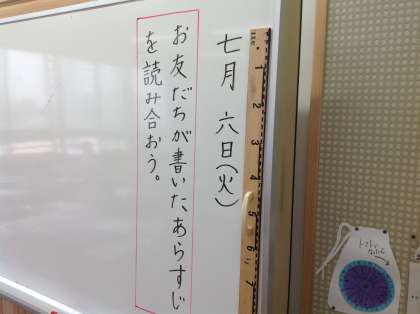 七月 六日(火)
お友だちが書いたあらすじ
を読み合おう。
1
2
3
4
5
6
7